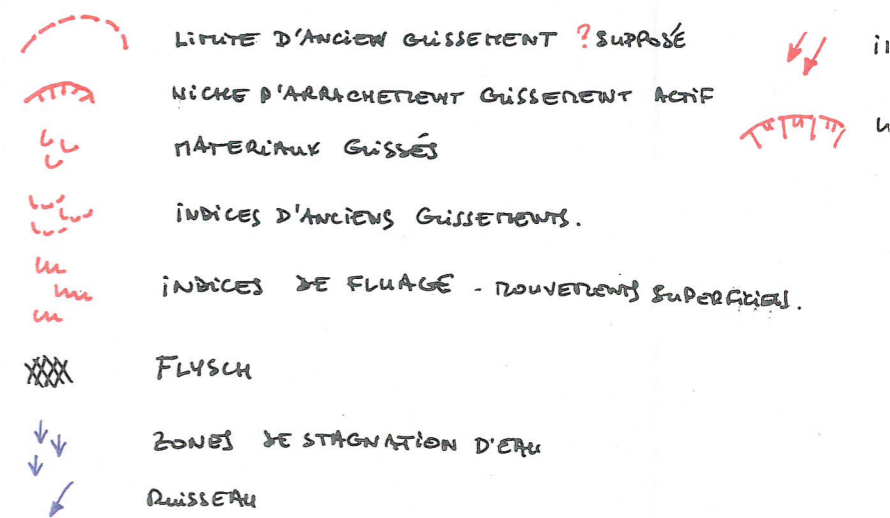 LIMITE D'ANCIEN GLISSEMENT ? SUPPOSÉ
NICHE D'ARRACHEMENT GLISSEMENT ACTIF
MATERIAUX GLISSÉS
INDICES D'ANCIENS GLISSEMENTS.
INDICES DE FLUAGE - MOUVEMENTS SUPERFICIELS.
FLYSCH
ZONES DE STAGNATION D'EAU
RUISSEAU